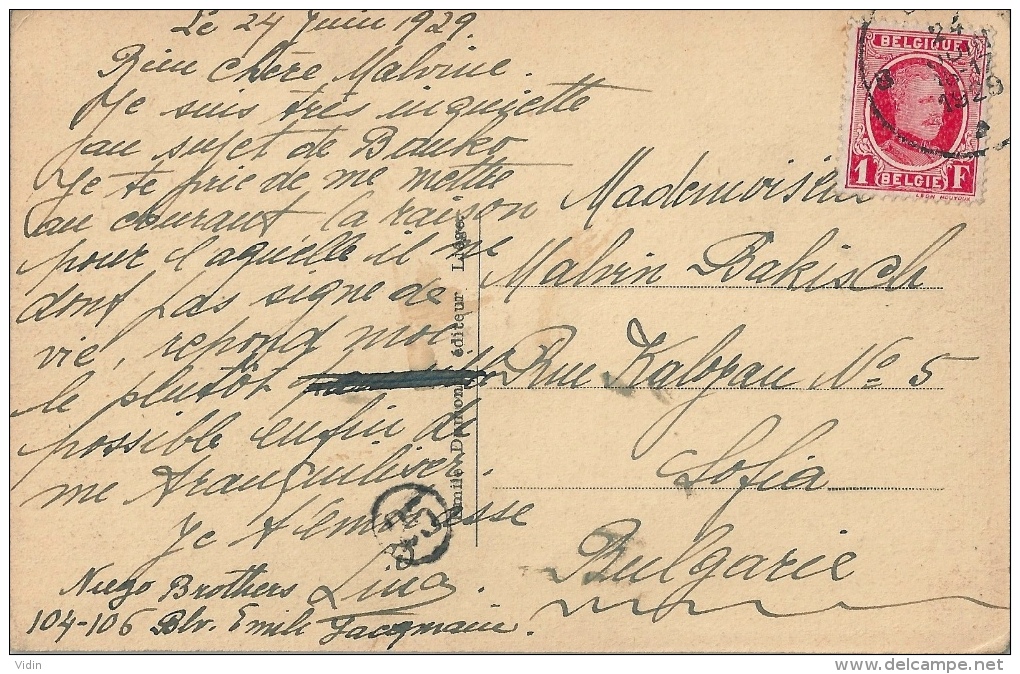 Le 24 Juin 1929.
Bien chère Malvine.
Je suis très inquiette
au sujet de Bouko
Je te prie de me mettre
au courant la raison
pour laquelle il ne
dont pas signe de
vie, repond moi
le plutôt
possible enfin de
me tranquiliser.
Je t'embrasse
Lina.
Nuego Brothers
104-106 Blv. Emile Jacqmain.
Emile Dumont, éditeur Liége.
45
BELGIQUE
1 F
BELGIE
24
1929
Mademoiselle
Malvin Bakisch
Rue Kalojan No 5
Sofia
Bulgarie
Vidin
delcampe.net